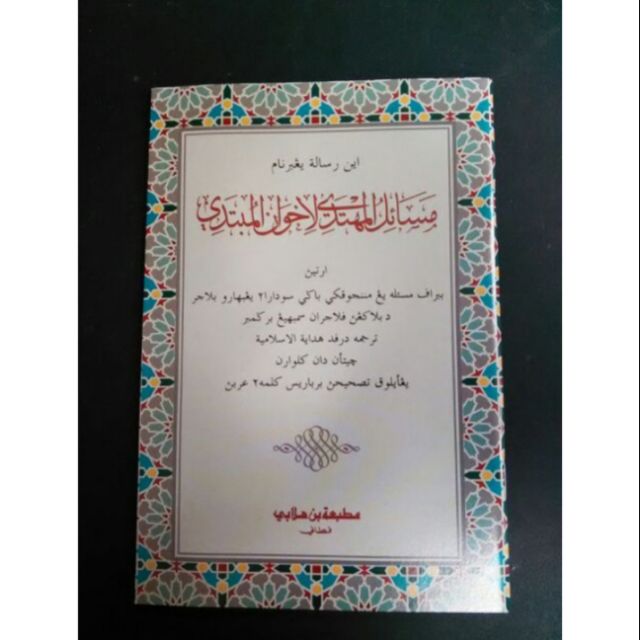 اين رسالة يڠبرنام
مسائل المهتدي لاخوان المبتدي
ارتين
ببراف مسئله يڠ مننجوقكي باݢي سودارا٢ يڠبهارو بلاجر
دبلاكڠن فلاجران سمبهيڠ بركمبر
ترجمه درفد هداية الاسلامية
چيتأن دان كلوارن
يڠأيلوق تصحيحن برباريس كلمه٢ عربن
مطبعة بن هلابي
فطاني